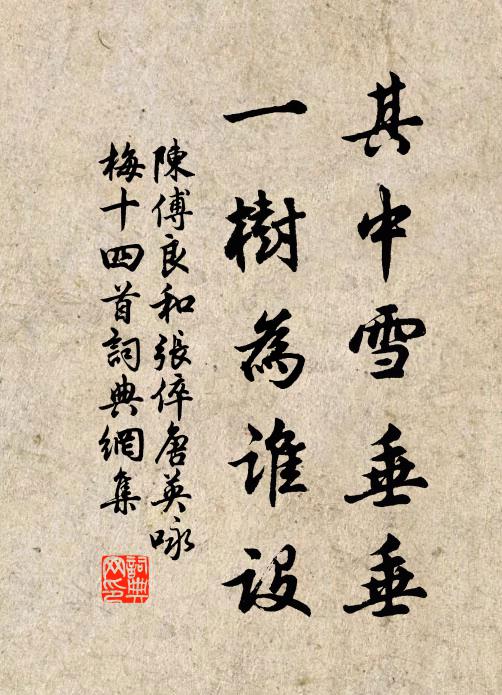 其中雪垂垂
一樹為誰設
陳傅良和張倅唐英咏
梅十四首詞典網集
詞典
网印